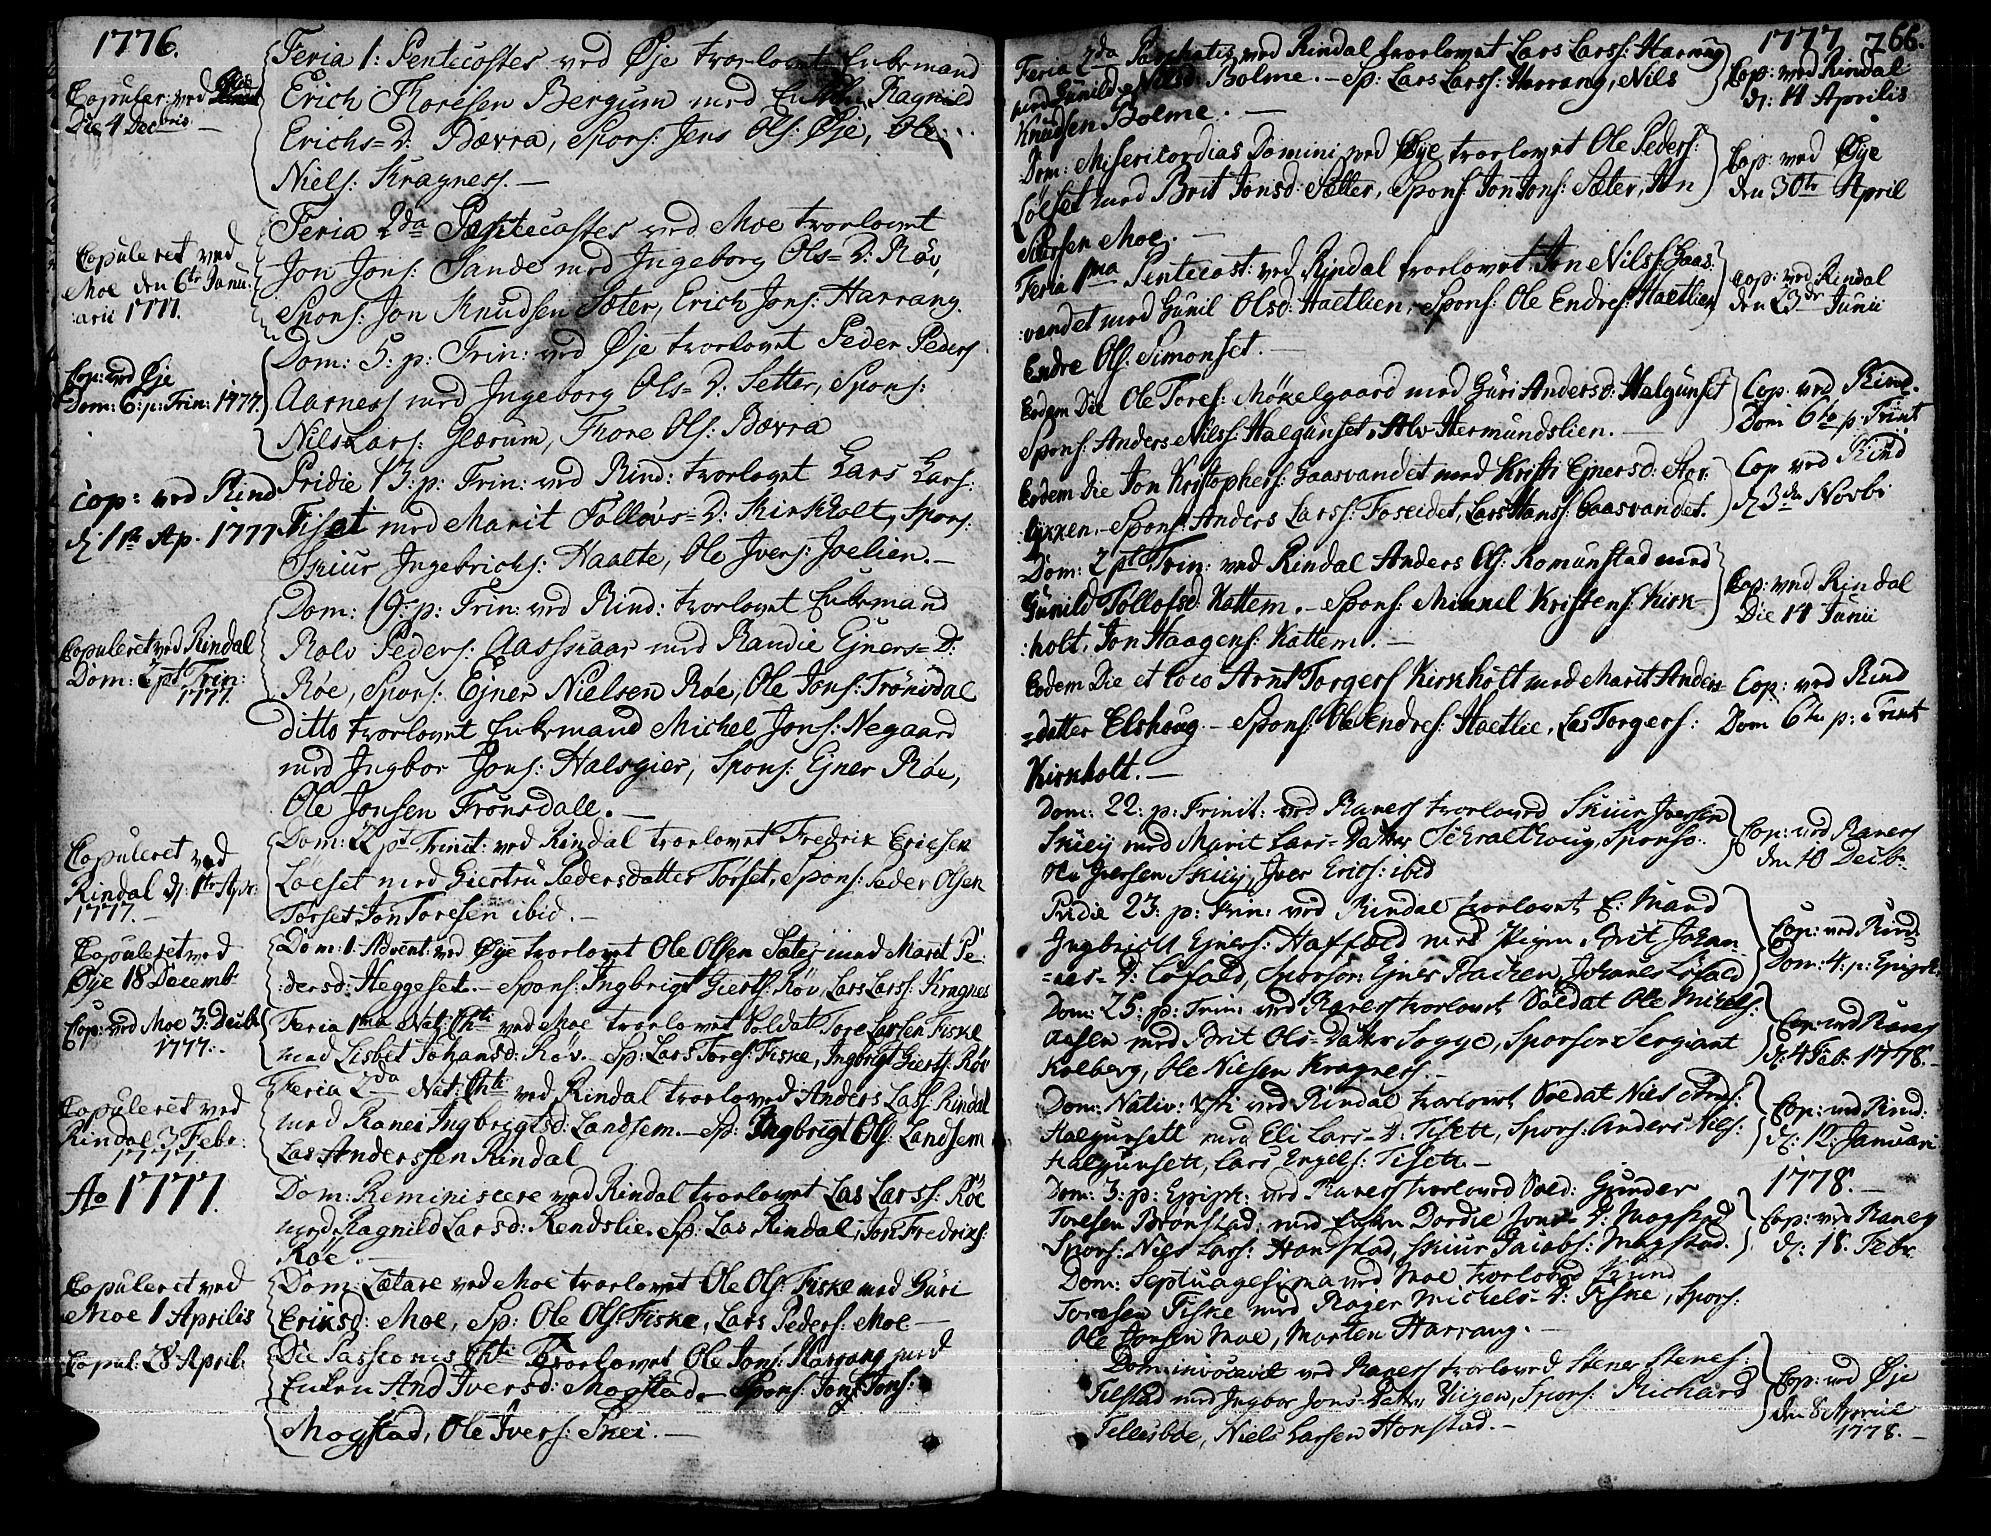 1776.
Copuler: ved
Die 4 Decbris
Feria 1: Pentecostes ved Øje trorlovet Enkemand
Erich Thoresen Bergum med Enken Ragnild
Erichs=D: Bævra, Spons: Jens Ols: Øje, Ole
Niels: Kragness.
Copuleret ved
Moe den 6te Janu:
:arii 1777.
Feria 2da Pentecostes ved Moe trorlovet
Jon Jons: Sande med Ingeborg Ols=D: Røv,
Spons: Jon Knudsen Sæter, Erich Jons: Harrang.
Cop: ved Øje
Dom: 6: p: Trin: 1777.
Dom: 5: p: Trin: ved Øje trorlovet Peder Peders
Aarness med Ingeborg Ols=D: Setter, Spons:
Nils Lars: Glærum, Thore Ols: Bævra
Cop: ved Rind
d: 1te Ap. 1777
Pridie 13: p: Trin: ved Rind: trorlovet Lars Lars:
Tiset med Marit Tollovs=D: Kirkholt, Spons:
Skiur Ingebrichs: Haalte, Ole Ivers: Joelien.
Copuleret ved Rindal
Dom: 2 pt Trin:
1777.
Dom: 19: p: Trin: ved Rind: trorlovet Enkemand
Rolv Peders: Aasskaar med Randie Ejners=D:
Røe, Spons: Ejner Nielsen Røe, Ole Jons: Trönsdal
ditto trorlovet Enkemand Michel Jons: Negaard
med Ingbor Jons: Halsgier, Spons: Ejner Røe,
Ole Jonsen Trönsdale.
Copuleret ved
Rindal d: 1te Apr:
1777.
Dom: 22 pt Trinit: ved Rindal trorlovet Fredrik Ericksen
Løeset med Giertru Pedersdatter Törset, Spons: Peder Olsen
Törset Jon Toresen ibid.
Copuleret ved
Øye 18 Decemb:
Dom: 1: Advent: ved Øye trorlovet Ole Olsen Sæter med Marit Pe:
:dersd: Heggeset. Spons: Ingbrigt Gierts: Röv, Lars Lars: Kragnes
Cop: ved Moe 3: Decbr
1777:
Feria 1ma Nat: Chti ved Moe trorlovet Soldat Tore Larsen Fiske
med Lisbet Johansd: Røv. Sp: Lars Tores: Fiske, Ingbrigt Gierts: Röv
Copuleret ved
Rindal 3 Febr:
1777
Feria 2da Nat: Chti ved Rindal trorloved Anders Lass: Rindal
med Ranei Ingbrigtsd: Landsem. Sp: Ingbrigt Ols: Landsem
Las Anderssen Rindal
Ao 1777.
Dom: Reminiscere ved Rindal trorlovet Las Larss: Röe
med Ragnild Larsd: Rendslie. Sp: Las Rindal, Jon Fredriks:
Röe.
Copuleret ved
Moe 1 Aprilis
Dom: Lætare ved Moe trorlovet Ole Ols: Fiske med Guri
Eriksd: Moe, Sp: Ole Ols: Fiske, Lars Peders: Moe
Copul: 28 April:
Die Passionis Chti Trorlovet Ole Jons: Harrang med
Enken And Iversd: Mogstad. Spons: Jons Jons:
Mogstad, Ole Ivers: Skei.
1777
266.
Feria 2da Paschatis ved Rindal trorlovet Lars Larss: Harrang
med Gunild Nilsd: Bolme. Sp: Lars Larss: Harrang, Nils
Knudsen Bolme.
Cop: ved Rindal
d: 14 Aprilis
Dom: Misericordias Domini ved Øye trorlovet Ole Peders:
Løeset med Brit Jonsd: Sætter, Spons: Jon Jons: Sæter, Jon
Moe.
Cop: ved Øye
den 30te April
Feria 1ma Pentecost: ved Rindal trorlovet Jon Nilss: Gaas:
:vandet med Gunil Olsd: Haetlien, Spons: Ole Endres: Haetlien
Endre Ols: Simonset.
Cop: ved Rindal
den 23de Junii
Eodem Die Ole Tores: Mökelgaard med Guri Andersd: Halgunset
Spons: Anders Nilss: Halgunset, Alv Hermundslien.
Cop: ved Rind.
Dom 6te p: Trint
Eodem Die Jon Kristophers: Gaasvandet med Kristi Ejnersd: Stor:
:lykken. Spons: Anders Larss: Foseidet, Lars Hanss: Gaasvandet.
Cop ved Rind
d 3die Novbr
Dom: 2 pt Trin: ved Rindal Anders Ols: Romunstad med
Gunild Tollofsd: Kattem. Spons: Mikkel Kristens: Kirk
:holt, Jon Haagens: Kattem.
Cop: ved Rindal
Die 14 Junii
Eodem Die et loco Arnt Torgers Kirkholt med Marit Anders
=datter Elshoug. Spons: Ole Endres: Haetlie, Las Torgers:
Kirkholt.
Cop: ved Rind
Dom 6te p: Trint
Dom: 22: p: Trinit: ved Raness trorloved Skiur Joersen
Skieij med Marit Lars=Datter Schralthoug, Sponso:
Ole Joersen Skieij, Joer Erics: ibid
Cop: ved Raness
den 10 Decbr
Pridie 23: p: Trin: ved Rindal trorlovet E: Mand
Ingbricht Ejners: Haffæld med Pigen Brit Johan
=nes=D: Løfald, Sponsor: Ejner Backen, Johanes Löfald
Cop: ved Rind:
Dom: 4: p: Epiph:
Dom: 25: p: Trin: ved Raness trorlovet Soldat Ole Mikels:
Aasen med Brit Ols=Datter Sogge, Sponsor Sergiant
Kolberg, Ole Nielsen Kragness.
Cop: ved Ranes
d: 4 Feb: 1778.
Dom: Nativ: Xsti ved Rindal trorlovet Soldat Niels Ands:
Halgunsett med Eli Lars=D: Tisett, Spons: Anders Niels:
Halgunsett, Lars Engels: Tisett.
Cop: ved Rind:
d: 12: Januari
1778.
Dom: 3: p: Epiph: ved Raness trorloved Sold: Gunder
Toresen Brønstad med Enken Dordie Jons=D: Mogstad
Spons: Niels Lars: Honstad, Skiur Jacobs: Mogstad.
Cop: ved Raness
d: 18. Febr.
Dom: Septuagesima ved Moe trorloved Knud
Toresen Fiske med Roger Michels=D: Fiske, Spons:
Ole Jonsen Moe, Morten Harrang.
Dom: Invocavit ved Raness trorloved Stener Stenes:
Tilstad med Ingbor Jons=Datter Vigen, Spons: Richard
Tellesböe, Niels Larsen Honstad.
Cop: ved Øje
den 8 Aprill
1778.